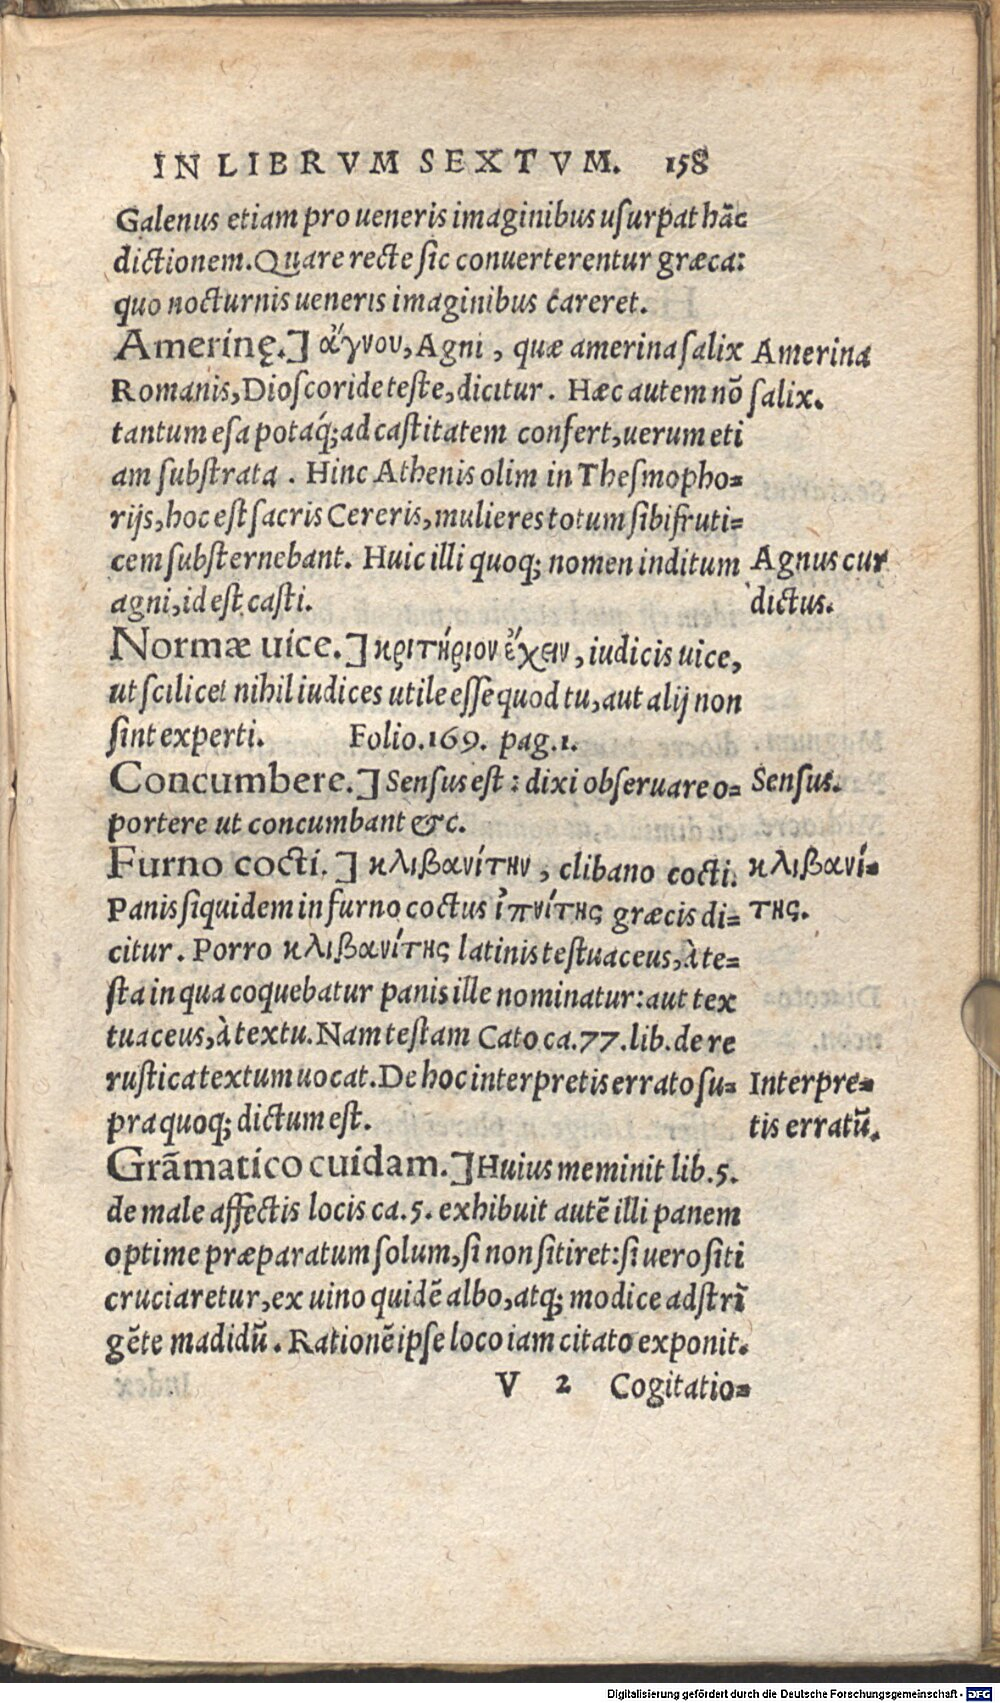 IN LIBRVM SEXTVM. 158
Galenus etiam pro ueneris imaginibus uſurpat hãc
dictionem. Quare recte ſic conuerterentur græca:
quo nocturnis ueneris imaginibus careret.
Amerinę.] ἄγνου, Agni, quæ amerina ſalix
Amerina
Romanis, Dioſcoride teſte, dicitur. Hæc autem nõ
ſalix.
tantum eſa potaq́; ad caſtitatem confert, uerum eti
am ſubſtrata. Hinc Athenis olim in Theſmopho=
rijs, hoc eſt ſacris Cereris, mulieres totum ſibi fruti=
cem ſubſternebant. Huic illi quoq; nomen inditum
Agnus cur
agni, id eſt caſti.
dictus.
Normæ uice.] κριτήριον ἔχειν, iudicis uice,
ut ſcilicet nihil iudices utile eſſe quod tu, aut alij non
ſint experti. Folio. 169. pag. 1.
Concumbere.] Senſus eſt: dixi obſeruare o=
Senſus.
portere ut concumbant &c.
Furno cocti.] κλιβανίτην, clibano cocti.
κλιβανί=
Panis ſiquidem in furno coctus ἰπνίτης græcis di=
της.
citur. Porro κλιβανίτης latinis teſtuaceus, à te=
ſta in qua coquebatur panis ille nominatur: aut tex
tuaceus, à textu. Nam teſtam Cato ca. 77. lib. de re
ruſtica textum uocat. De hoc interpretis errato ſu=
Interpre=
pra quoq; dictum eſt.
tis erratũ.
Grãmatico cuidam.] Huius meminit lib. 5.
de male affectis locis ca. 5. exhibuit autẽ illi panem
optime præparatum ſolum, ſi non ſitiret: ſi uero ſiti
cruciaretur, ex uino quidẽ albo, atq; modice adſtrĩ
gẽte madidũ. Rationẽ ipſe loco iam citato exponit.
V 2 Cogitatio=
Digitalisierung gefördert durch die Deutsche Forschungsgemeinschaft - DFG